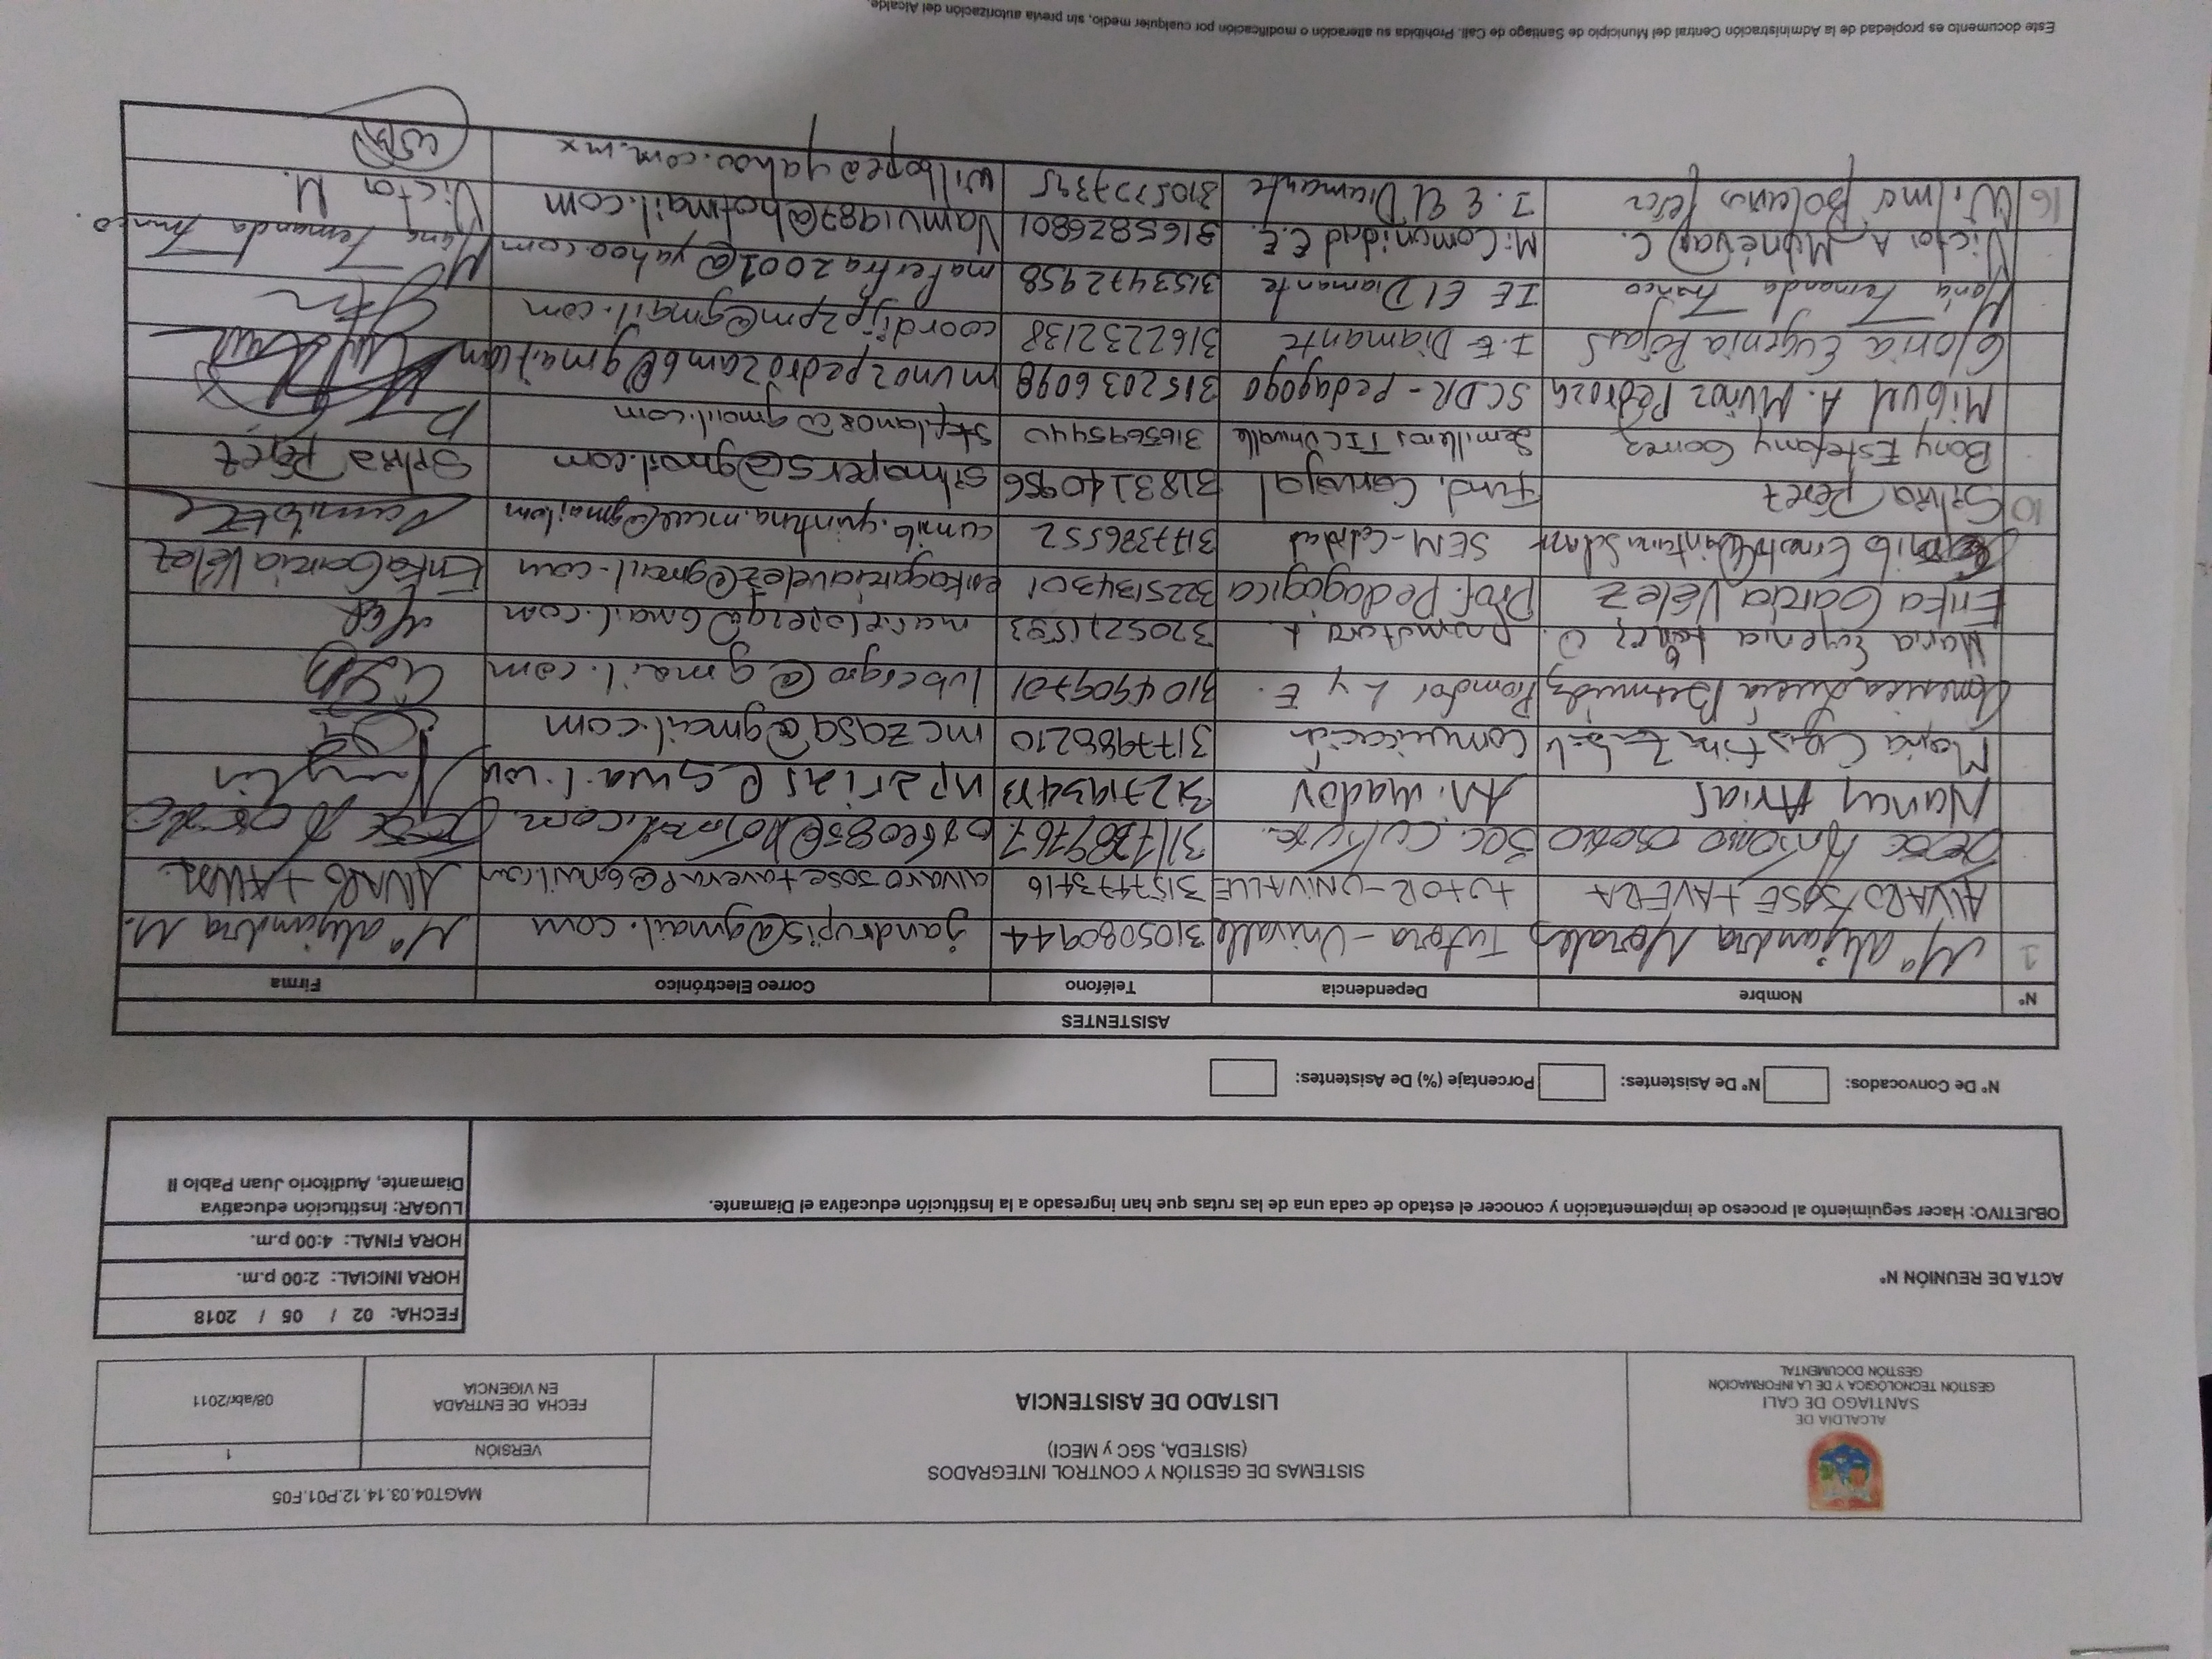 ALCALDÍA DE
SANTIAGO DE CALI
GESTIÓN TECNOLÓGICA Y DE LA INFORMACIÓN
GESTIÓN DOCUMENTAL
SISTEMAS DE GESTIÓN Y CONTROL INTEGRADOS
(SISTEDA, SGC y MECI)
LISTADO DE ASISTENCIA
MAGT04.03.14.12.P01.F05
VERSIÓN 1
FECHA DE ENTRADA
EN VIGENCIA
08/abr/2011
ACTA DE REUNIÓN N°
FECHA: 02 / 05 / 2018
HORA INICIAL: 2:00 p.m.
HORA FINAL: 4:00 p.m.
OBJETIVO: Hacer seguimiento al proceso de implementación y conocer el estado de cada una de las rutas que han ingresado a la Institución educativa el Diamante.
LUGAR: Institución educativa
Diamante, Auditorio Juan Pablo II
N° De Convocados: N° De Asistentes: Porcentaje (%) De Asistentes:
ASISTENTES
N° Nombre Dependencia Teléfono Correo Electrónico Firma
1 Mª alejandra Morales Tutora - Univalle 3105080944 jandrupis@gmail.com Mª alejandra M.
ALVARO JOSE TAVERA TUTOR-UNIVALLE 3157473416 alvarojosetaverap@gmail.com
Jose Antonio Osorio Sec. Cultura. 3117389767 orfeo85@hotmail.com
Nancy Arias Animador nparias@gmail.com
María Cristina Comunicación 3177988210 mczasa@gmail.com
America Lucía Bermúdez Promotor L y E. 3104909701 lubergro@gmail.com
Maria Eugenia López O. promotora L. 3205271593 marielopezg@Gmail.com
Erika García Vélez Prof. Pedagógica 3225134301 erikagarciavelez@gmail.com Erika García Vélez
Camilo Ernesto Quintana SEM-Calidad 3177386552
10 Silvia Pérez Fund. Carvajal 3183140956 silmapers@gmail.com Silvia Pérez
Bony Estefany Gomez Semilleros TIC Univalle 3165695440 stefilano8@gmail.com
Miguel A. Muñoz Pedroza SCDR - pedagogo 3152036098 munozpedrozam6@gmail.com
Gloria Eugenia Rojas S I.E Diamante 3162232138 coordijp2pm@gmail.com
María Fernanda Franco IE El Diamante 3153472958 maferfra2001@yahoo.com María Fernanda Franco.
Victor A. Munévar C. Mi Comunidad E.E. 3165826801 Vamu1987@hotmail.com Victor M.
16 Wilmer Bolaños Pérez I.E El Diamante 3105327395 wilbope@yahoo.com.mx
Este documento es propiedad de la Administración Central del Municipio de Santiago de Cali. Prohibida su alteración o modificación por cualquier medio, sin previa autorización del Alcalde.